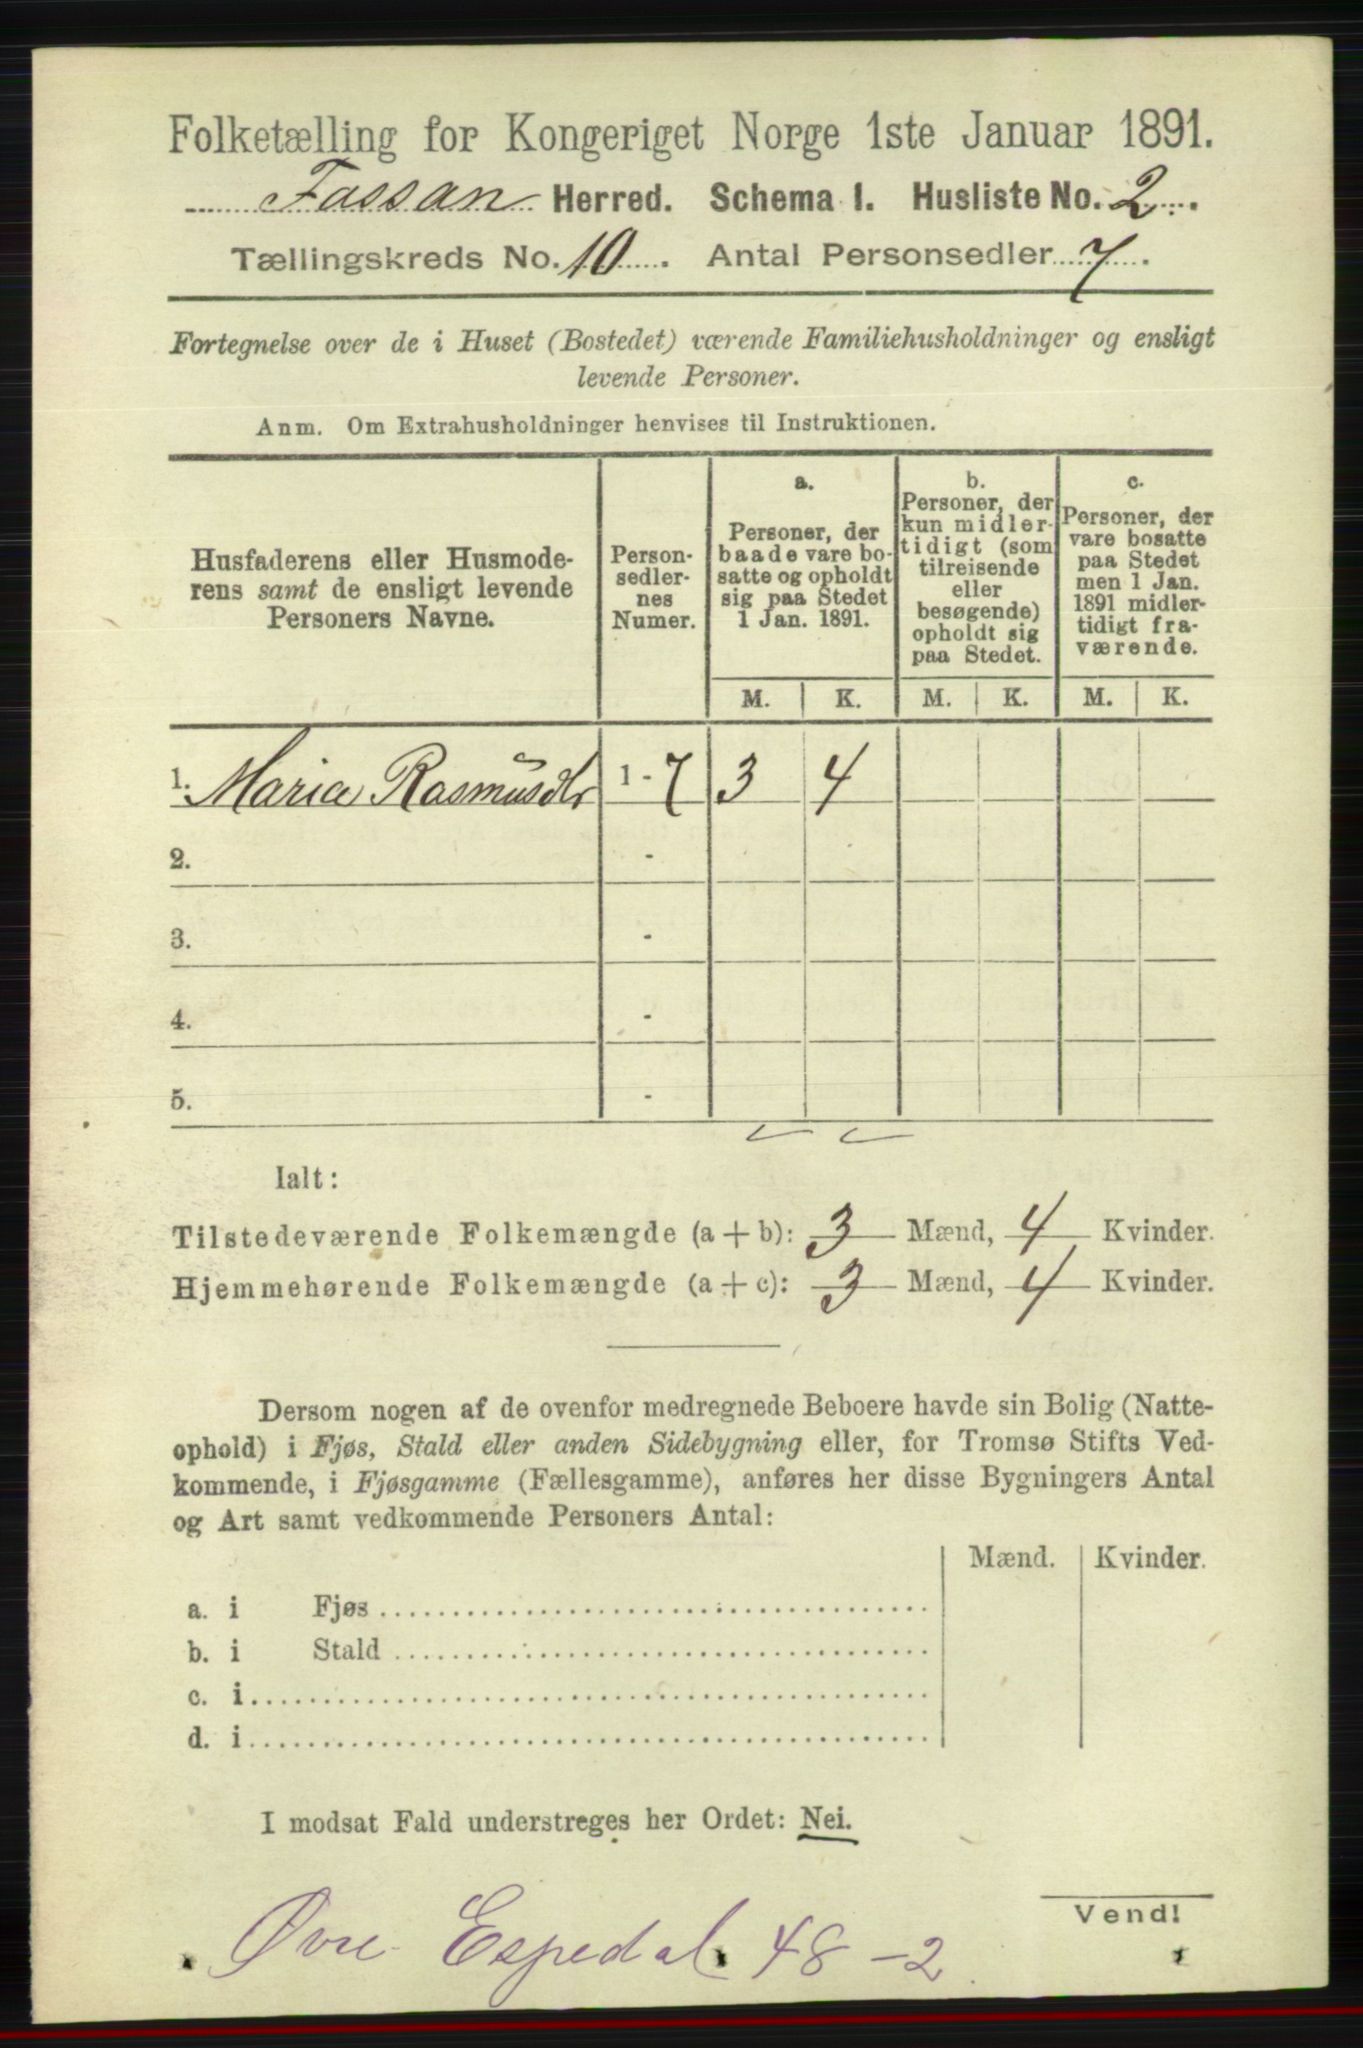 Folketælling for Kongeriget Norge 1ste Januar 1891.
Fossan Herred. Schema 1. Husliste No. 2.
Tællingskreds No. 10. Antal Personsedler 7.
Fortegnelse over de i Huset (Bostedet) værende Familiehusholdninger og ensligt
levende Personer.
Anm. Om Extrahusholdninger henvises til Instruktionen.
Husfaderens eller Husmode-
rens samt de ensligt levende
Personers Navne.
Person-
sedler-
nes
Numer.
a.
Personer, der
baade vare bo-
satte og opholdt
sig paa Stedet
1 Jan. 1891.
b.
Personer, der
kun midler-
tidigt (som
tilreisende
eller
besøgende)
opholdt sig
paa Stedet.
c.
Personer, der
vare bosatte
paa Stedet
men 1 Jan.
1891 midler-
tidigt fra-
værende.
M. K. M. K. M. K.
1. Maria Rasmusdtr 1 - 7 3 4
2. -
3. -
4. -
5. -
Ialt:
Tilstedeværende Folkemængde (a + b): 3 Mænd, 4 Kvinder.
Hjemmehørende Folkemængde (a + c): 3 Mænd, 4 Kvinder.
Dersom nogen af de ovenfor medregnede Beboere havde sin Bolig (Natte-
ophold) i Fjøs, Stald eller anden Sidebygning eller, for Tromsø Stifts Ved-
kommende, i Fjøsgamme (Fællesgamme), anføres her disse Bygningers Antal
og Art samt vedkommende Personers Antal:
Mænd. Kvinder.
a. i Fjøs
b. i Stald
c. i
d. i
I modsat Fald understreges her Ordet: Nei.
Vend!
Øvre Espedal 48-2